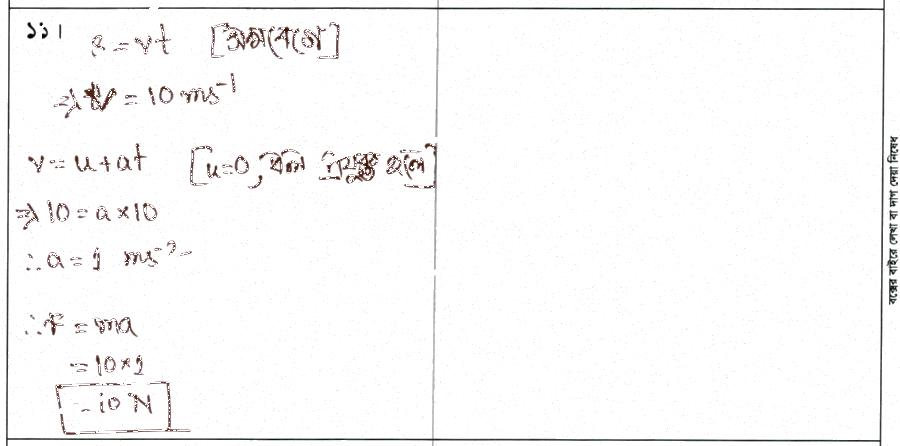 ১১।
s = vt [সমবেগে]
⇒ v = 10 ms⁻¹
v = u + at [u=0, বল প্রযুক্ত হলে]
⇒ 10 = a × 10
∴ a = 1 ms⁻²
∴ F = ma
= 10 × 1
= 10 N
বক্সের বাইরে লেখা বা দাগ দেয়া নিষেধ